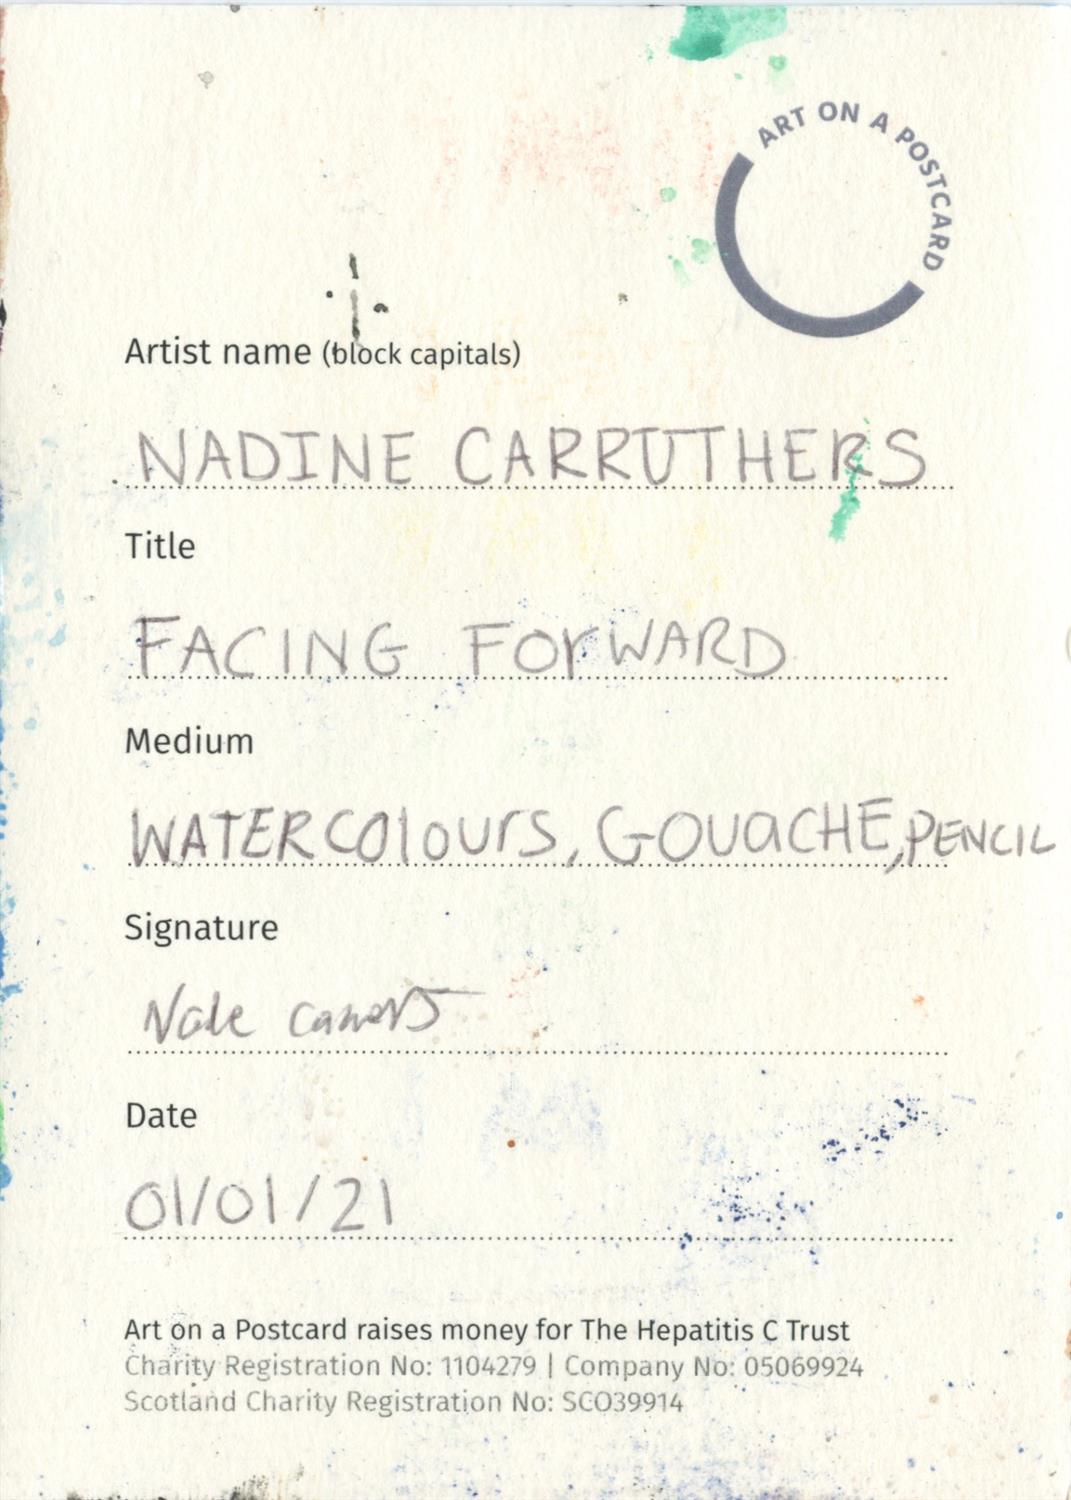 ART ON A POSTCARD
Artist name (block capitals)
NADINE CARRUTHERS
Title
FACING FORWARD
Medium
WATERCOlOUrS, GOUaCHE, PENCIL
Signature
Date
01/01/21
Art on a Postcard raises money for The Hepatitis C Trust
Charity Registration No: 1104279 | Company No: 05069924
Scotland Charity Registration No: SCO39914